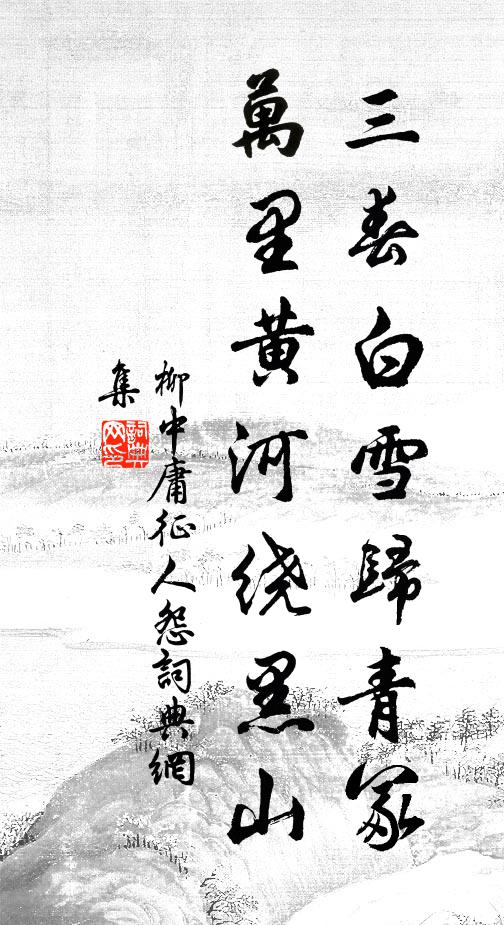 三春白雪歸青冢
萬里黄河绕黑山
柳中庸征人怨詞典網
集